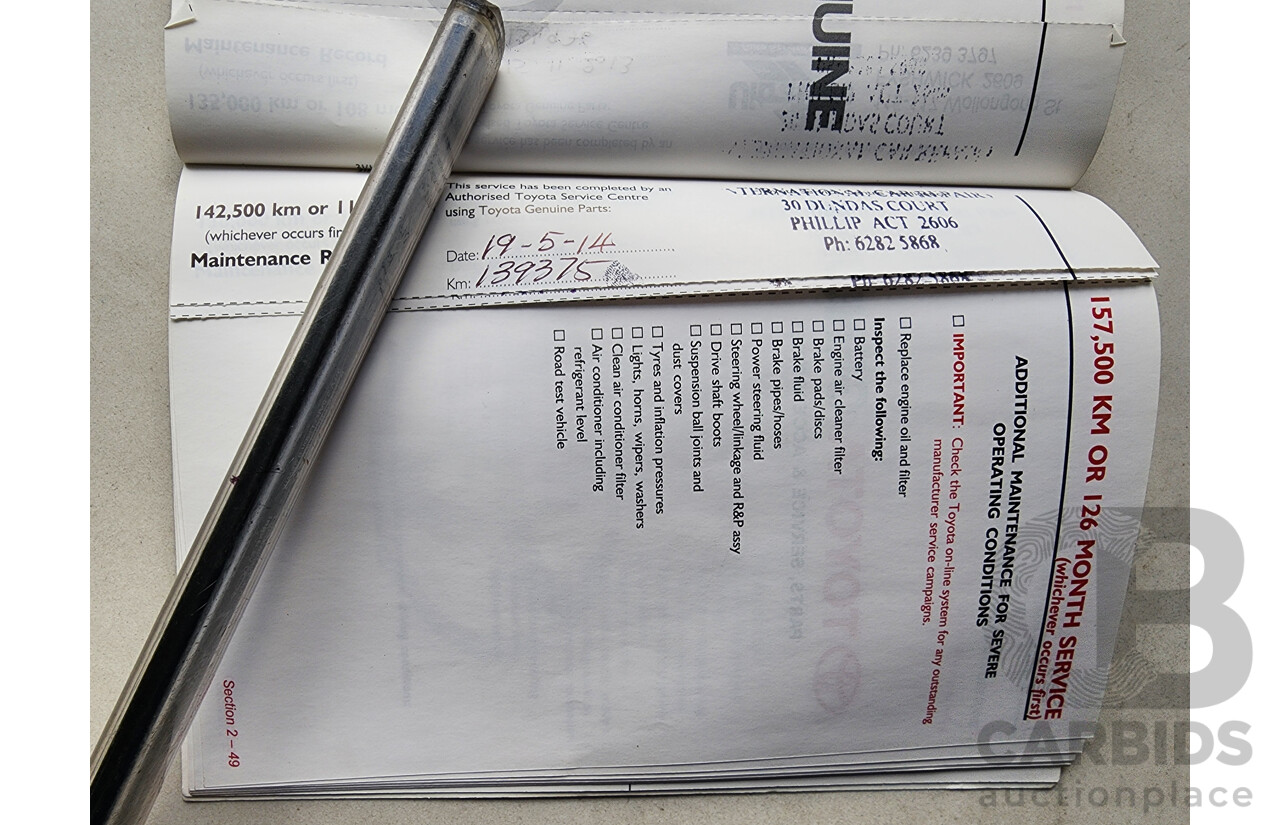 UINE
142,500 km or 1
(whichever occurs fir
Maintenance R
This service has been completed by an
Authorised Toyota Service Centre
using Toyota Genuine Parts:
Date: 19-5-14
Km: 139375
30 DUNDAS COURT
PHILLIP ACT 2606
Ph: 6282 5868
Ph: 6282 5868
157,500 KM OR 126 MONTH SERVICE
(whichever occurs first)
ADDITIONAL MAINTENANCE FOR SEVERE
OPERATING CONDITIONS
IMPORTANT: Check the Toyota on-line system for any outstanding
manufacturer service campaigns.
Replace engine oil and filter
Inspect the following:
Battery
Engine air cleaner filter
Brake pads/discs
Brake fluid
Brake pipes/hoses
Power steering fluid
Steering wheel/linkage and R&P assy
Drive shaft boots
Suspension ball joints and
dust covers
Tyres and inflation pressures
Lights, horns, wipers, washers
Clean air conditioner filter
Air conditioner including
refrigerant level
Road test vehicle
Section 2 – 49
CARBIDS
auctionplace